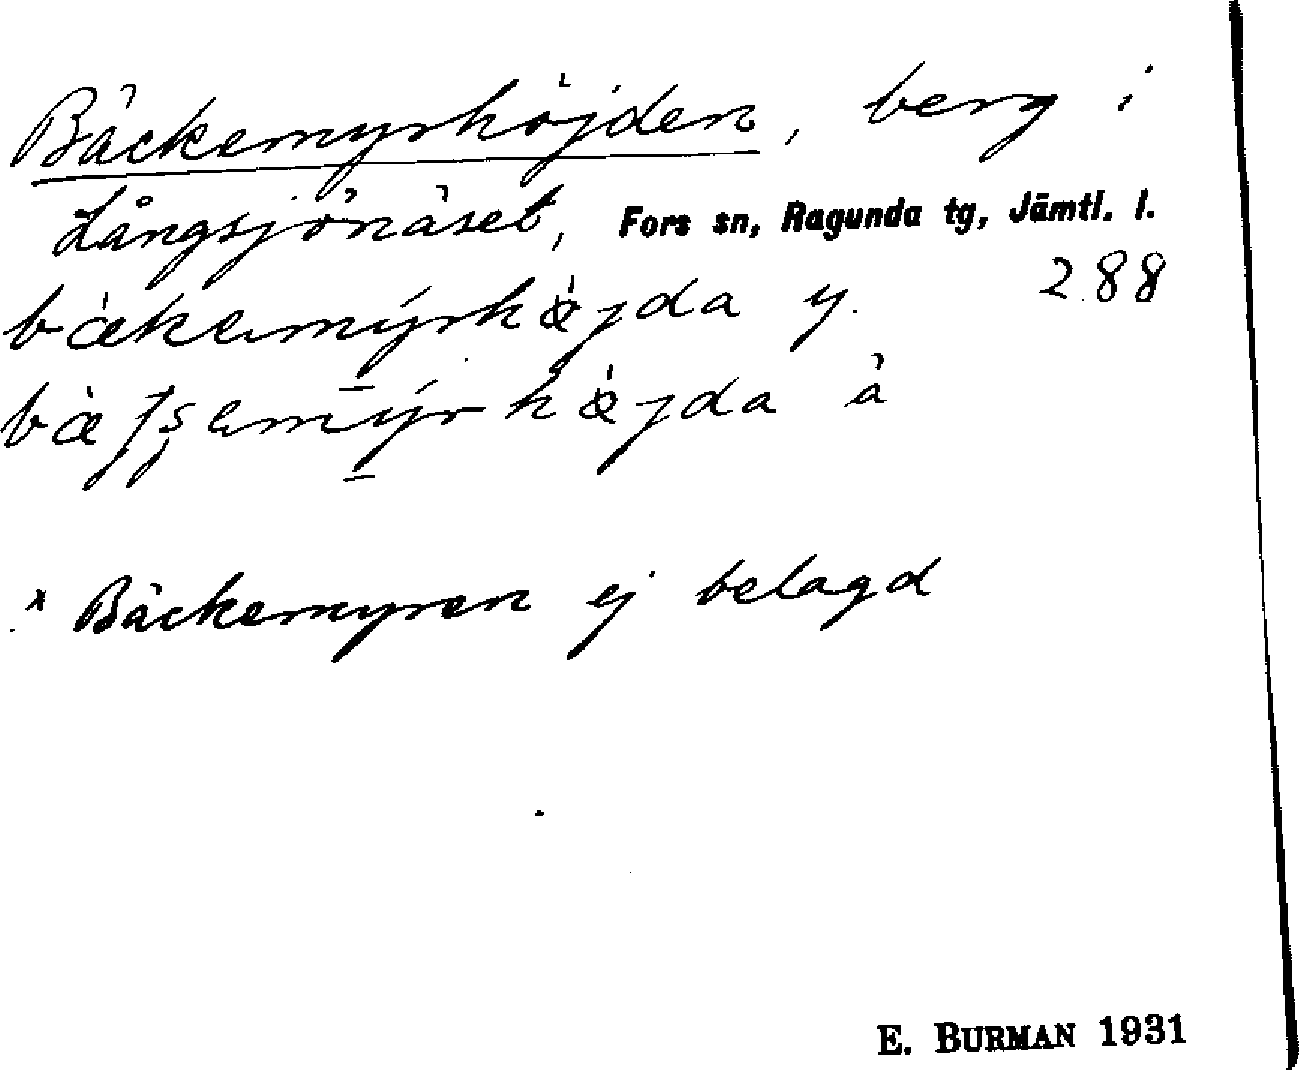 Bäckemyrhöjden, berg i
Långsjönäset, Fors sn, Ragunda tg, Jämtl. l.
288
bækemýrhæjda y.
å
x Bäckemyren ej belagd
E. BURMAN 1931